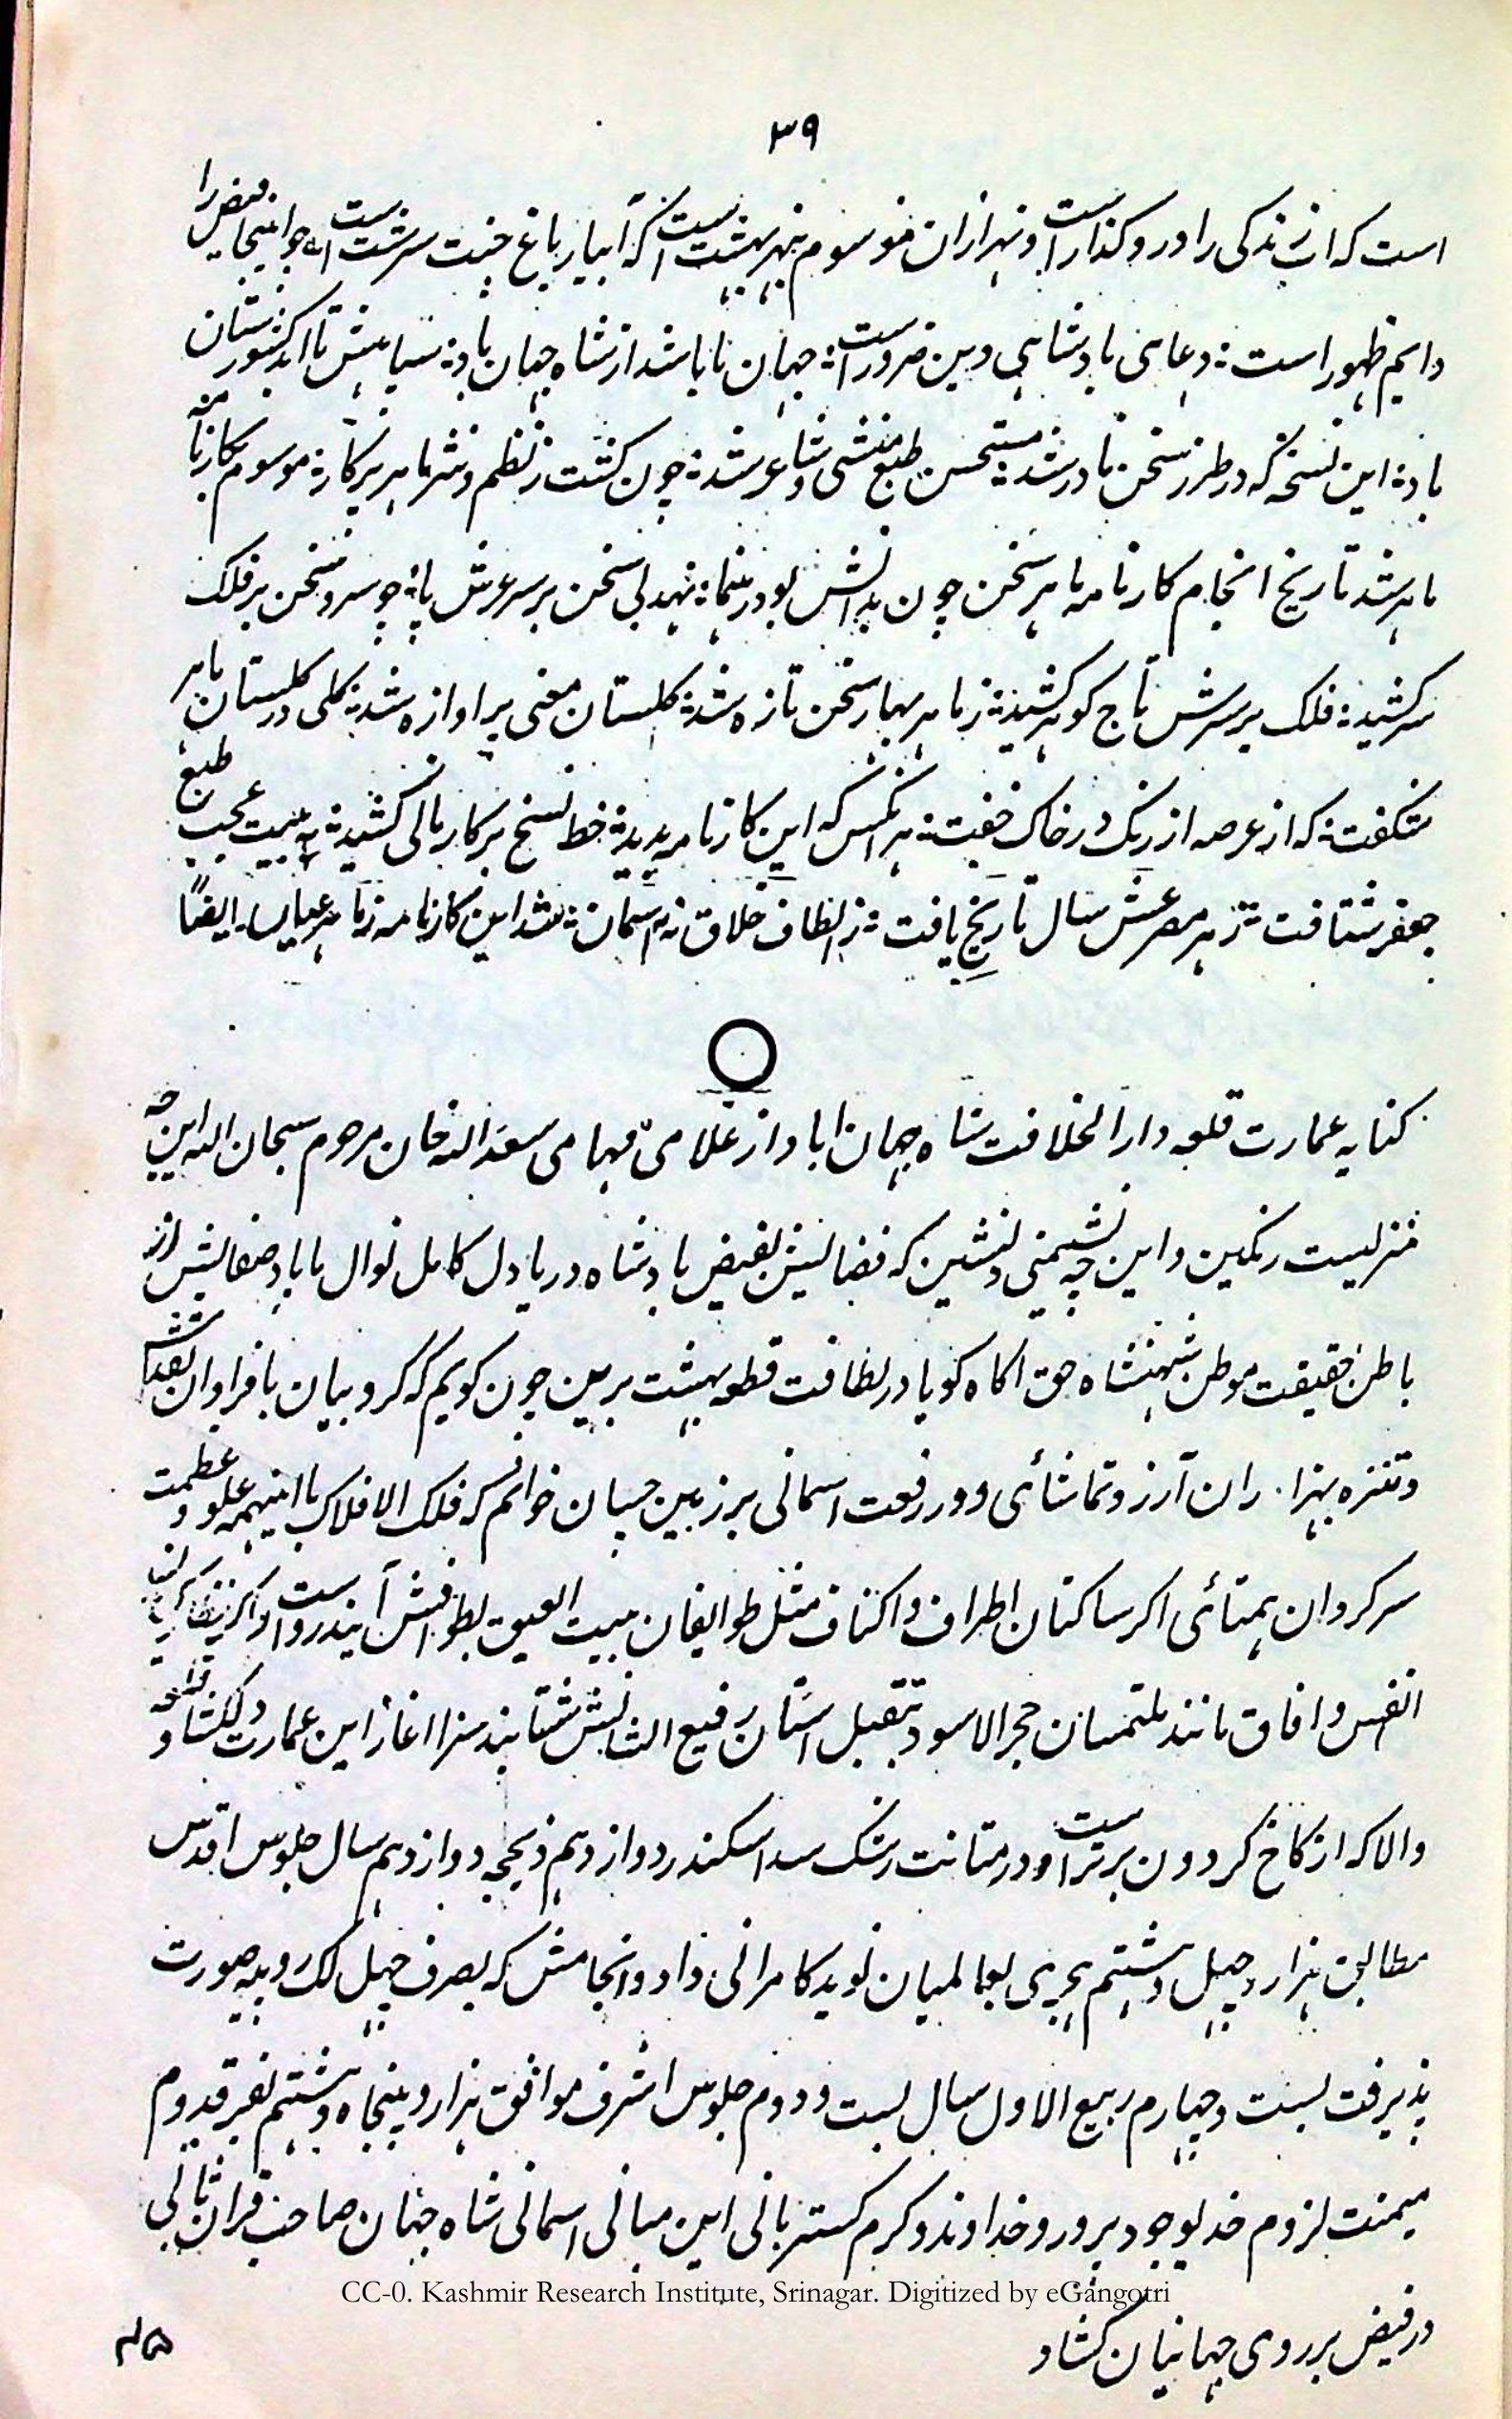 ۳۹
است که از زندگی را درو گذار است و نهرازان موسوم بنهر بهشت است که آبیار باغ جنت سرشت است چو اینجا فیض را
دایم ظهور است ؛ دعای بادشاهی دین ضرور است ؛ جهان تا باشد از شاه جهان باد ؛ سپاهش تا اند کشورستان
باد ؛ این نسخه که در طرز سخن نادر شد ؛ مستحسن طبع منشی و شاعر شد ؛ چون گشت ز نظم و نثر ماهر پرکار ؛ موسوم بکارنامه
ماهر شد تاریخ انجام کارنامه ماهر سخن چون بدانش بود رهنما ؛ نهد لی سخن بر سر عرش پا ؛ چو سرو سخن بر فلک
سر کشید ؛ فلک بر سرش تاج گوهر کشید ؛ ز ماهر بهار سخن تازه شد ؛ گلستان معنی پر اوازه شد ؛ گلی در گلستان ماهر
شگفت ؛ که از عرصه از رنگ در خاک خفت ؛ هر آنکس که این کارنامه بدید ؛ خط نسخ بر کار مانی کشید ؛ به بیت عجب طبع
جعفر شتافت ؛ ز هر مصرعش سال تاریخ یافت ؛ ز الطاف خلاق نه آسمان ؛ شد این کارنامه ز ماهر عیاں۔ ایضاً
کتابه عمارت قلعه دارالخلافت شاه جهان اباد از علامیّ فهامی سعد الله خان مرحوم سبحان الله این چه
منزلیست رنگین و این چه نشیمنی دلنشین که فضایش بفیض بادشاه دریا دل کامل نوال ماباد صفایش از
باطن حقیقت موطن شهنشاه حق اگاه گویا در لطافت قطعه بهشت برین چون گویم که کروبیان با فراوان تقدس
و تنزه بهزا. ران آرزو تماشائی و در رفعت اسمانی بر زمین چسان خوانم که فلک الافلاک با اینهمه علو و عظمت
سرگردان همتائی اگر ساکنان اطراف و اکناف مثل طوایفان بیت العیق بطوافش آیند رواست و اگر نظارگیان
انفس و افاق مانند ملتمسان حجر الاسود بتقبیل استان رفیع الشانش شتابند سزا اغاز این عمارت دلکشا و قلعه
والا که از کاخ گردون برتر است و در متانت رشک سد اسکندر دوازدهم ذیحجه دوازدهم سال جلوس اقدس
مطابق هزار و چهل و هشتم هجری بعالمیان نوید کامرانی داد و انجامش که بصرف چهل لک روپیه صورت
پذیرفت بست و چهارم ربیع الاول سال بست و دوم جلوس اشرف موافق هزار و پنجاه و هشتم بفر قدوم
میمنت لزوم خدیو جود پرور و خداوند و کرم گستر بانی این مبانی اسمانی شاه جهان صاحب قران ثانی
CC-0. Kashmir Research Institute, Srinagar. Digitized by eGangotri
در فیض بر روی جهانیان کشاد